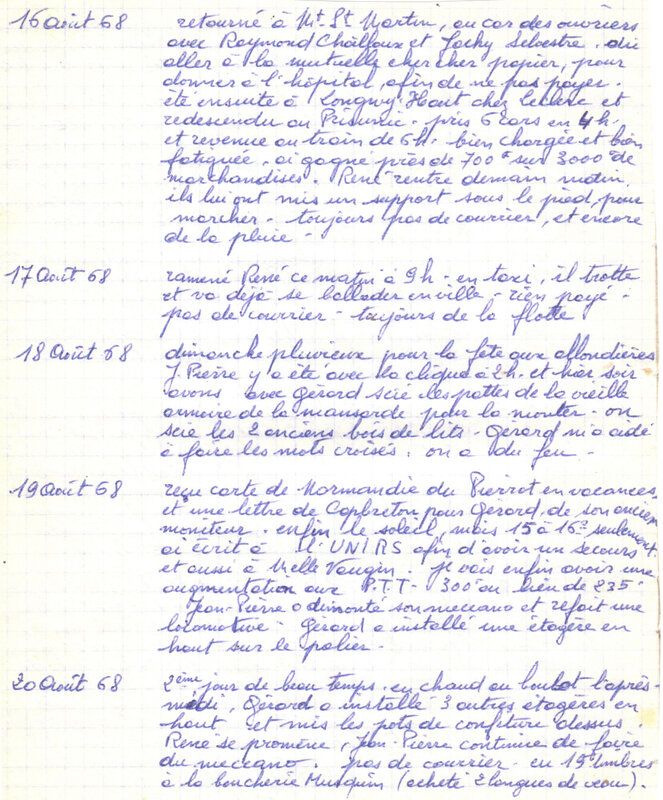 16 août 68 retourné à Mt. St Martin, au car des ouvriers
avec Raymond Chaïlloux et Jacky Selvestre. dû
aller à la mutuelle chercher papier, pour
donner à l'hôpital, afin de ne pas payer.
été ensuite à Longwy-Haut chez Leclerc et
redescendu au Prisunic. pris 6 cars en 4h.
et revenue au train de 6h. bien chargée et bien
fatiguée. ai gagné près de 700f sur 3000 de
marchandises. René rentre demain matin,
ils lui ont mis un support sous le pied, pour
marcher - toujours pas de courrier, et encore
de la pluie -
17 Août 68 ramené René ce matin à 9h - en taxi, il trotte
et va déjà se ballader en ville - rien payé -
pas de courrier - toujours de la flotte
18 Août 68 dimanche pluvieux pour la fête aux allondières
J. Pierre y a été avec la clique à 2h. et hier soir
avons avec Gérard scié les pattes de la vieille
armoire de la mansarde pour la monter - on
scie les 2 anciens bois de lits - Gérard m'a aidé
à faire les mots croisés. on a du feu -
19 Août 68 reçu carte de Normandie du Pierrot en vacances
et une lettre de Capbreton pour Gérard, de son ancien
moniteur. enfin le soleil, mais 15 à 16° seulement
ai écrit à l'UNIRS afin d'avoir un secours
et aussi à Melle Vaugin. je vais enfin avoir une
augmentation aux P.T.T - 300 au lieu de 235
Jean-Pierre a démonté son meccano et refait une
locomotive - Gérard a installé une étagère en
haut sur le palier -
20 Août 68 2ème jour de beau temps. eu chaud au boulot l'après-
midi, Gérard a installé 3 autres étagères en
haut et mis les pots de confiture dessus.
René se promène, Jean-Pierre continue de faire
du meccano. pas de courrier - eu 19 timbres
à la boucherie Musquin (acheté 2 langues de veau).